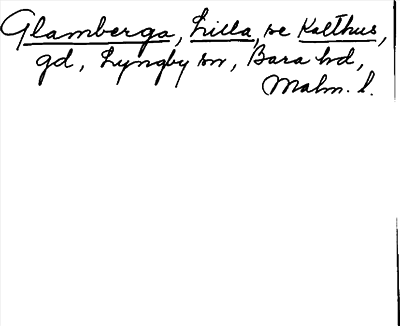 Glamberga, Lilla, se Kalthus,
gd, Lyngby sn, Bara hd,
Malm. l.